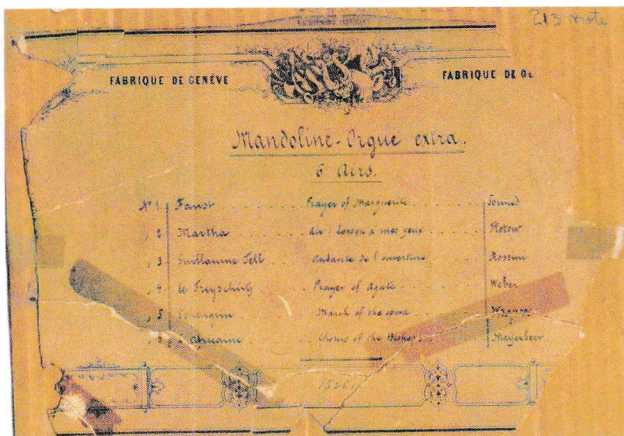 213 note
FABRIQUE DE GENÈVE FABRIQUE DE GE
Mandoline-Orgue extra.
6 Airs.
Nº 1 Faust Prayer of Marguerite Gounod
" 2 Martha Air: Lorsqu'à mes yeux Flotow
" 3 Guillaume Tell Andante de l'ouverture Rossini
" 4 Le Freyschütz Prayer of Agate Weber
" 5 Lohengrin March of the Wagner
" 6 L'Africaine Chorus of the Bishops Meyerbeer